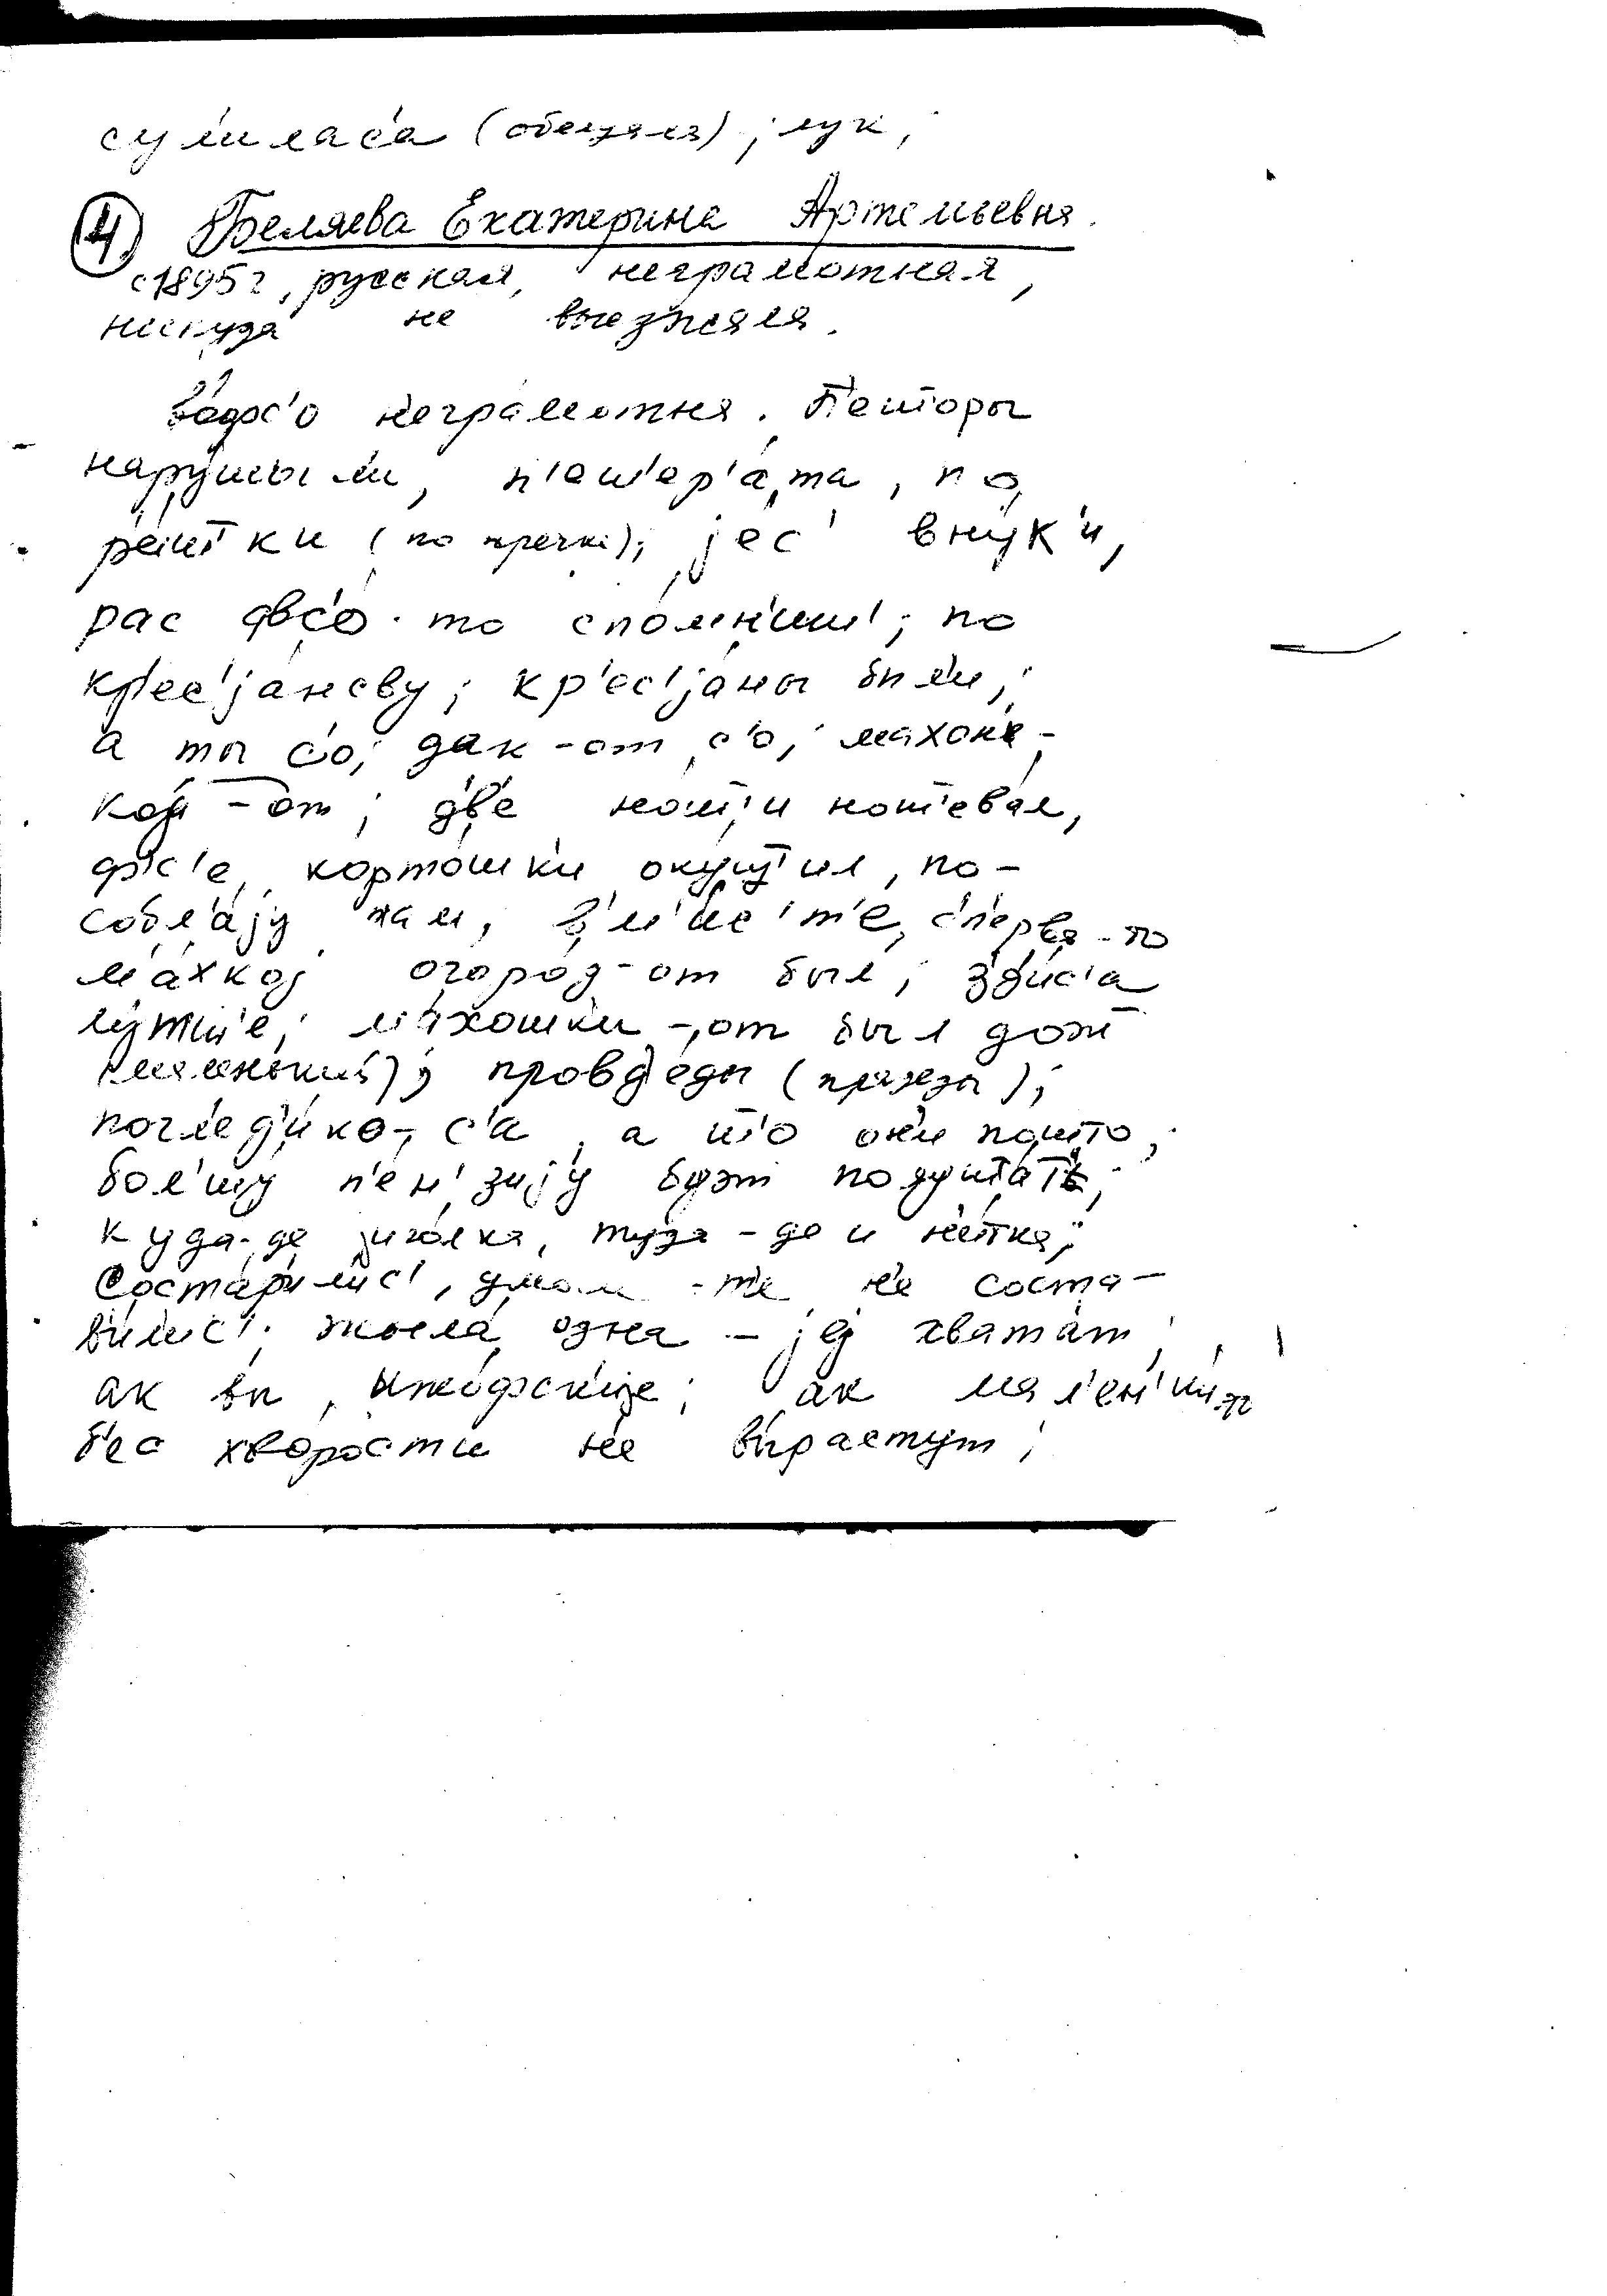 сул'илас'а (обещала); лук;
④ Беляева Екатерина Артемьевна.
с 1895 г, русская, неграмотная,
никуда не выезжала.
н'егра́мотна. П'ешторы
нару́шыл'и, п'еш'ер'а́та, по
(по речке); јес' вну́к'и,
рас фс'о-то спо́мн'иш'; по
кр'ес'ја́нсву; кр'ес'јаны был'и;
а ты с'о; дак-от с'о; махон'-
кој-от; дв'е ноч'и ноч'ева́л,
фс'е карто́шки окуч'ил, по-
собл'а́ју там, сп'ерва-то
м'а́хкој огоро́д-от был; зд'ис'а
л'у́тш'е; ма́хошки-от был дош
(маленький); провд'еды (прадеды);
погл'ед'и́ко-с'а, а што он'и
бол'шу п'е́н'з'ију бу́т получ'ат';
куда-де иголка, туда-де и н'итка;
состар'ил'ис', умом-т'е н'е соста-
в'ил'ис'; жыла́ одна – јеј хвата́т;
ак вы, ижо́фск'ије; ак мал'ен'ки-то
б'ес хворости н'е вы́растут;